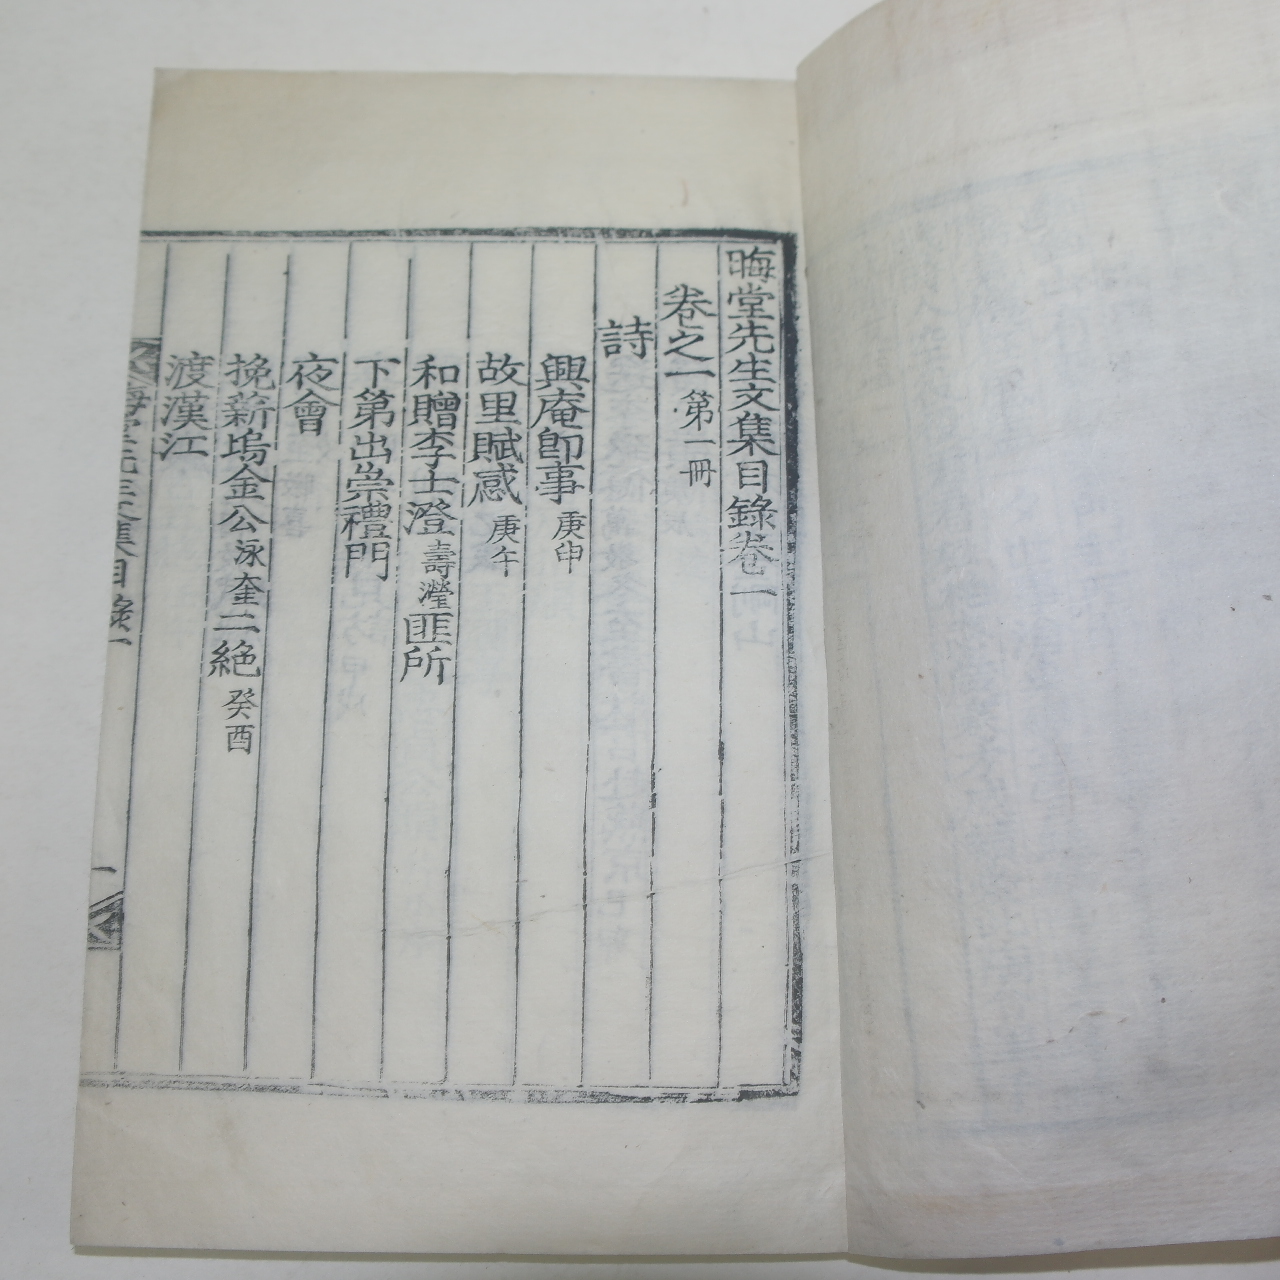 晦堂先生文集目錄卷一
卷之一 第一冊
詩
興庵卽事 庚申
故里賦感 庚午
和贈李士澄 壽瀅 匪所
下第出崇禮門
夜會
挽薪塢金公 泳奎 二絶 癸酉
渡漢江
晦堂先生文集目錄一
一